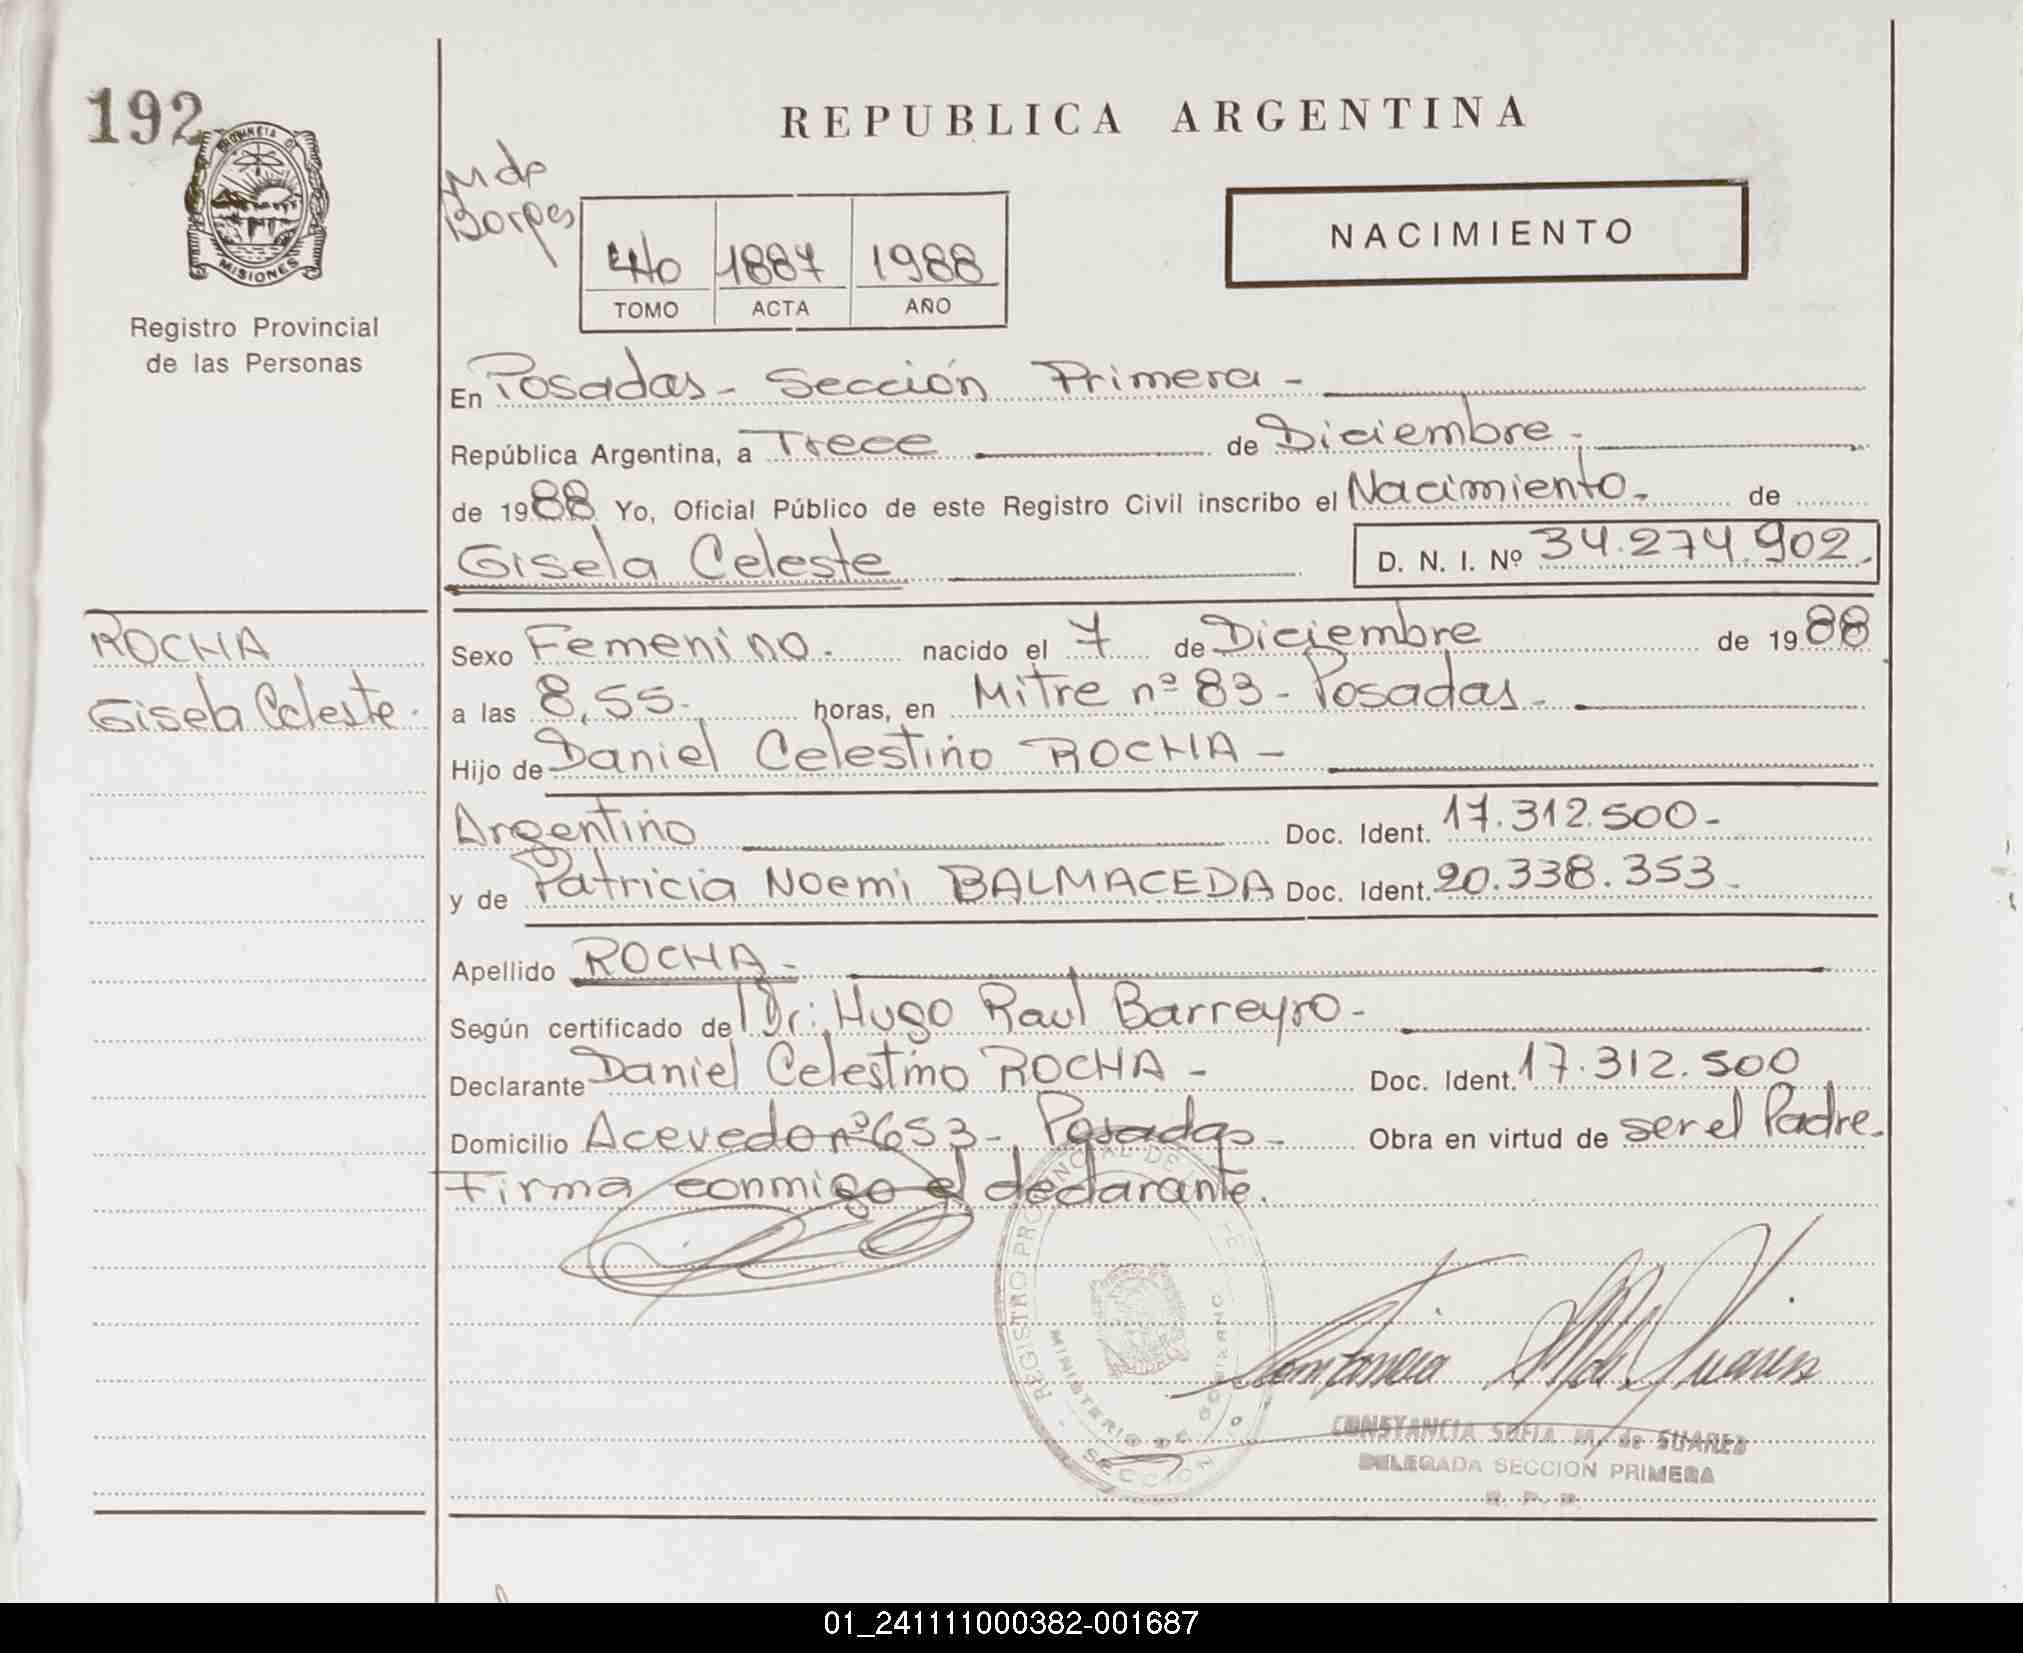 192
PROVINCIA DE
MISIONES
Registro Provincial
de las Personas
REPUBLICA ARGENTINA
NACIMIENTO
Mdp
Borges
4to 1887 1988
TOMO ACTA AÑO
En Posadas - Sección Primera -
República Argentina, a Trece de Diciembre -
de 1988 Yo, Oficial Público de este Registro Civil inscribo el Nacimiento. de
Gisela Celeste D. N. I. Nº 34.274.902.
ROCHA
Gisela Celeste.
Sexo Femenino. nacido el 7 de Diciembre de 1988
a las 8,55. horas, en Mitre nº 83 - Posadas -
Hijo de Daniel Celestino ROCHA -
Argentino Doc. Ident. 17.312.500 -
y de Patricia Noemi BALMACEDA Doc. Ident. 20.338.353 -
Apellido ROCHA -
Según certificado de Dr: Hugo Raul Barreyro -
Declarante Daniel Celestino ROCHA - Doc. Ident. 17.312.500
Domicilio Acevedo nº 653 -, Posadas - Obra en virtud de ser el Padre.
Firma conmigo el declarante.
REGISTRO PROVINCIAL DE
MINISTERIO DE GOBIERNO
SECCION
CONSTANCIA SOFIA M. de SUAREZ
DELEGADA SECCION PRIMERA
R. P. P.
01_241111000382-001687